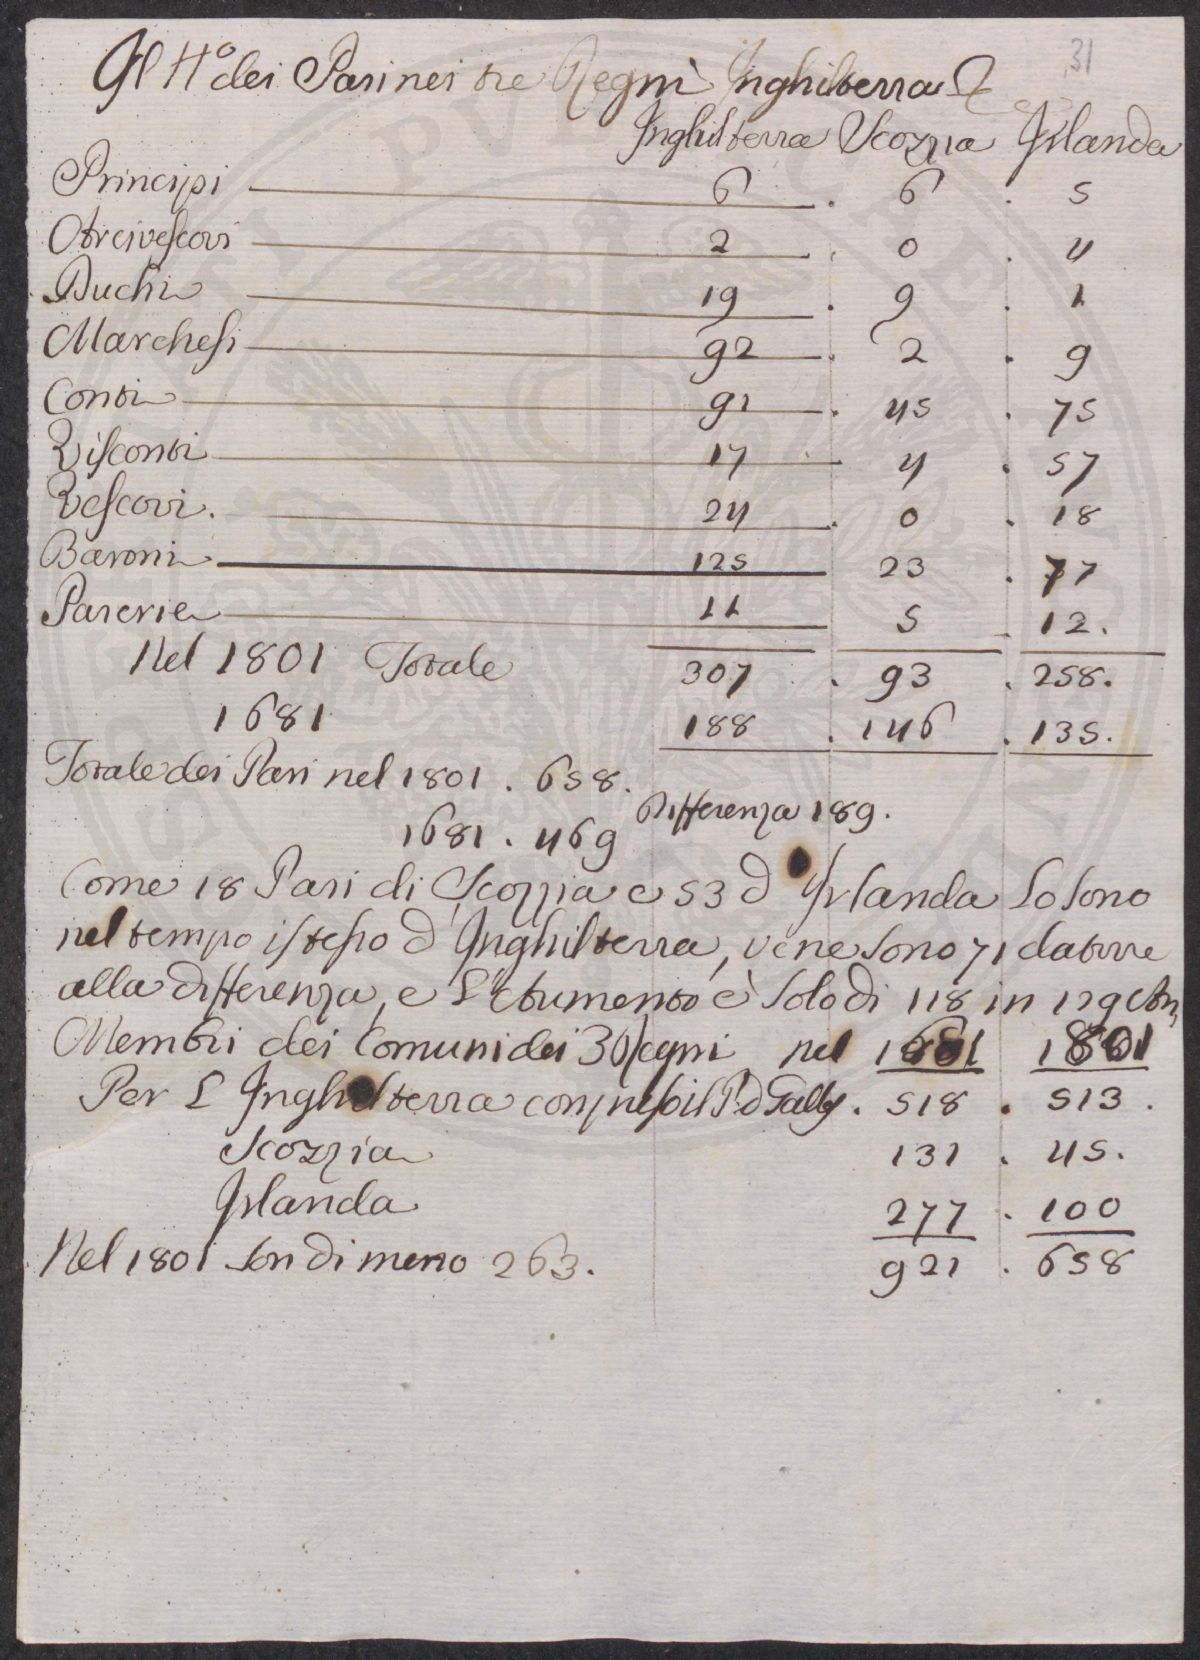 31
Il N.o dei Pari nei tre Regni Inghilterra &
Inghilterra Scozzia Irlanda
Principi 6 . 6 . 5
Arcivescovi 2 . 0 . 4
Duchi 19 . 9 . 1
Marchesi 92 . 2 . 9
Conti 91 . 45 . 75
Visconti 17 . 4 . 57
Vescovi. 24 . 0 . 18
Baroni 125 23 . 77
Parerie 11 5 . 12.
Nel 1801 Totale 307 . 93 . 258.
1681 188 . 146 . 135.
Totale dei Pari nel 1801 . 658.
Differenza 189.
1681 . 469
Come 18 Pari di Scozzia e 53 d Irlanda lo sono
nel tempo istesso d Inghilterra, ve ne sono 71 datorre
alla differenza, e L'Aumento è solo di 118 in 129 An
Membri dei Comuni dei 3 Regni nel 1681 1801
Per L Inghilterra compreso il P. d Gally . 518 . 513 .
Scozzia 131 . 45.
Irlanda 277 . 100
Nel 1801 son di meno 263. 921 . 658